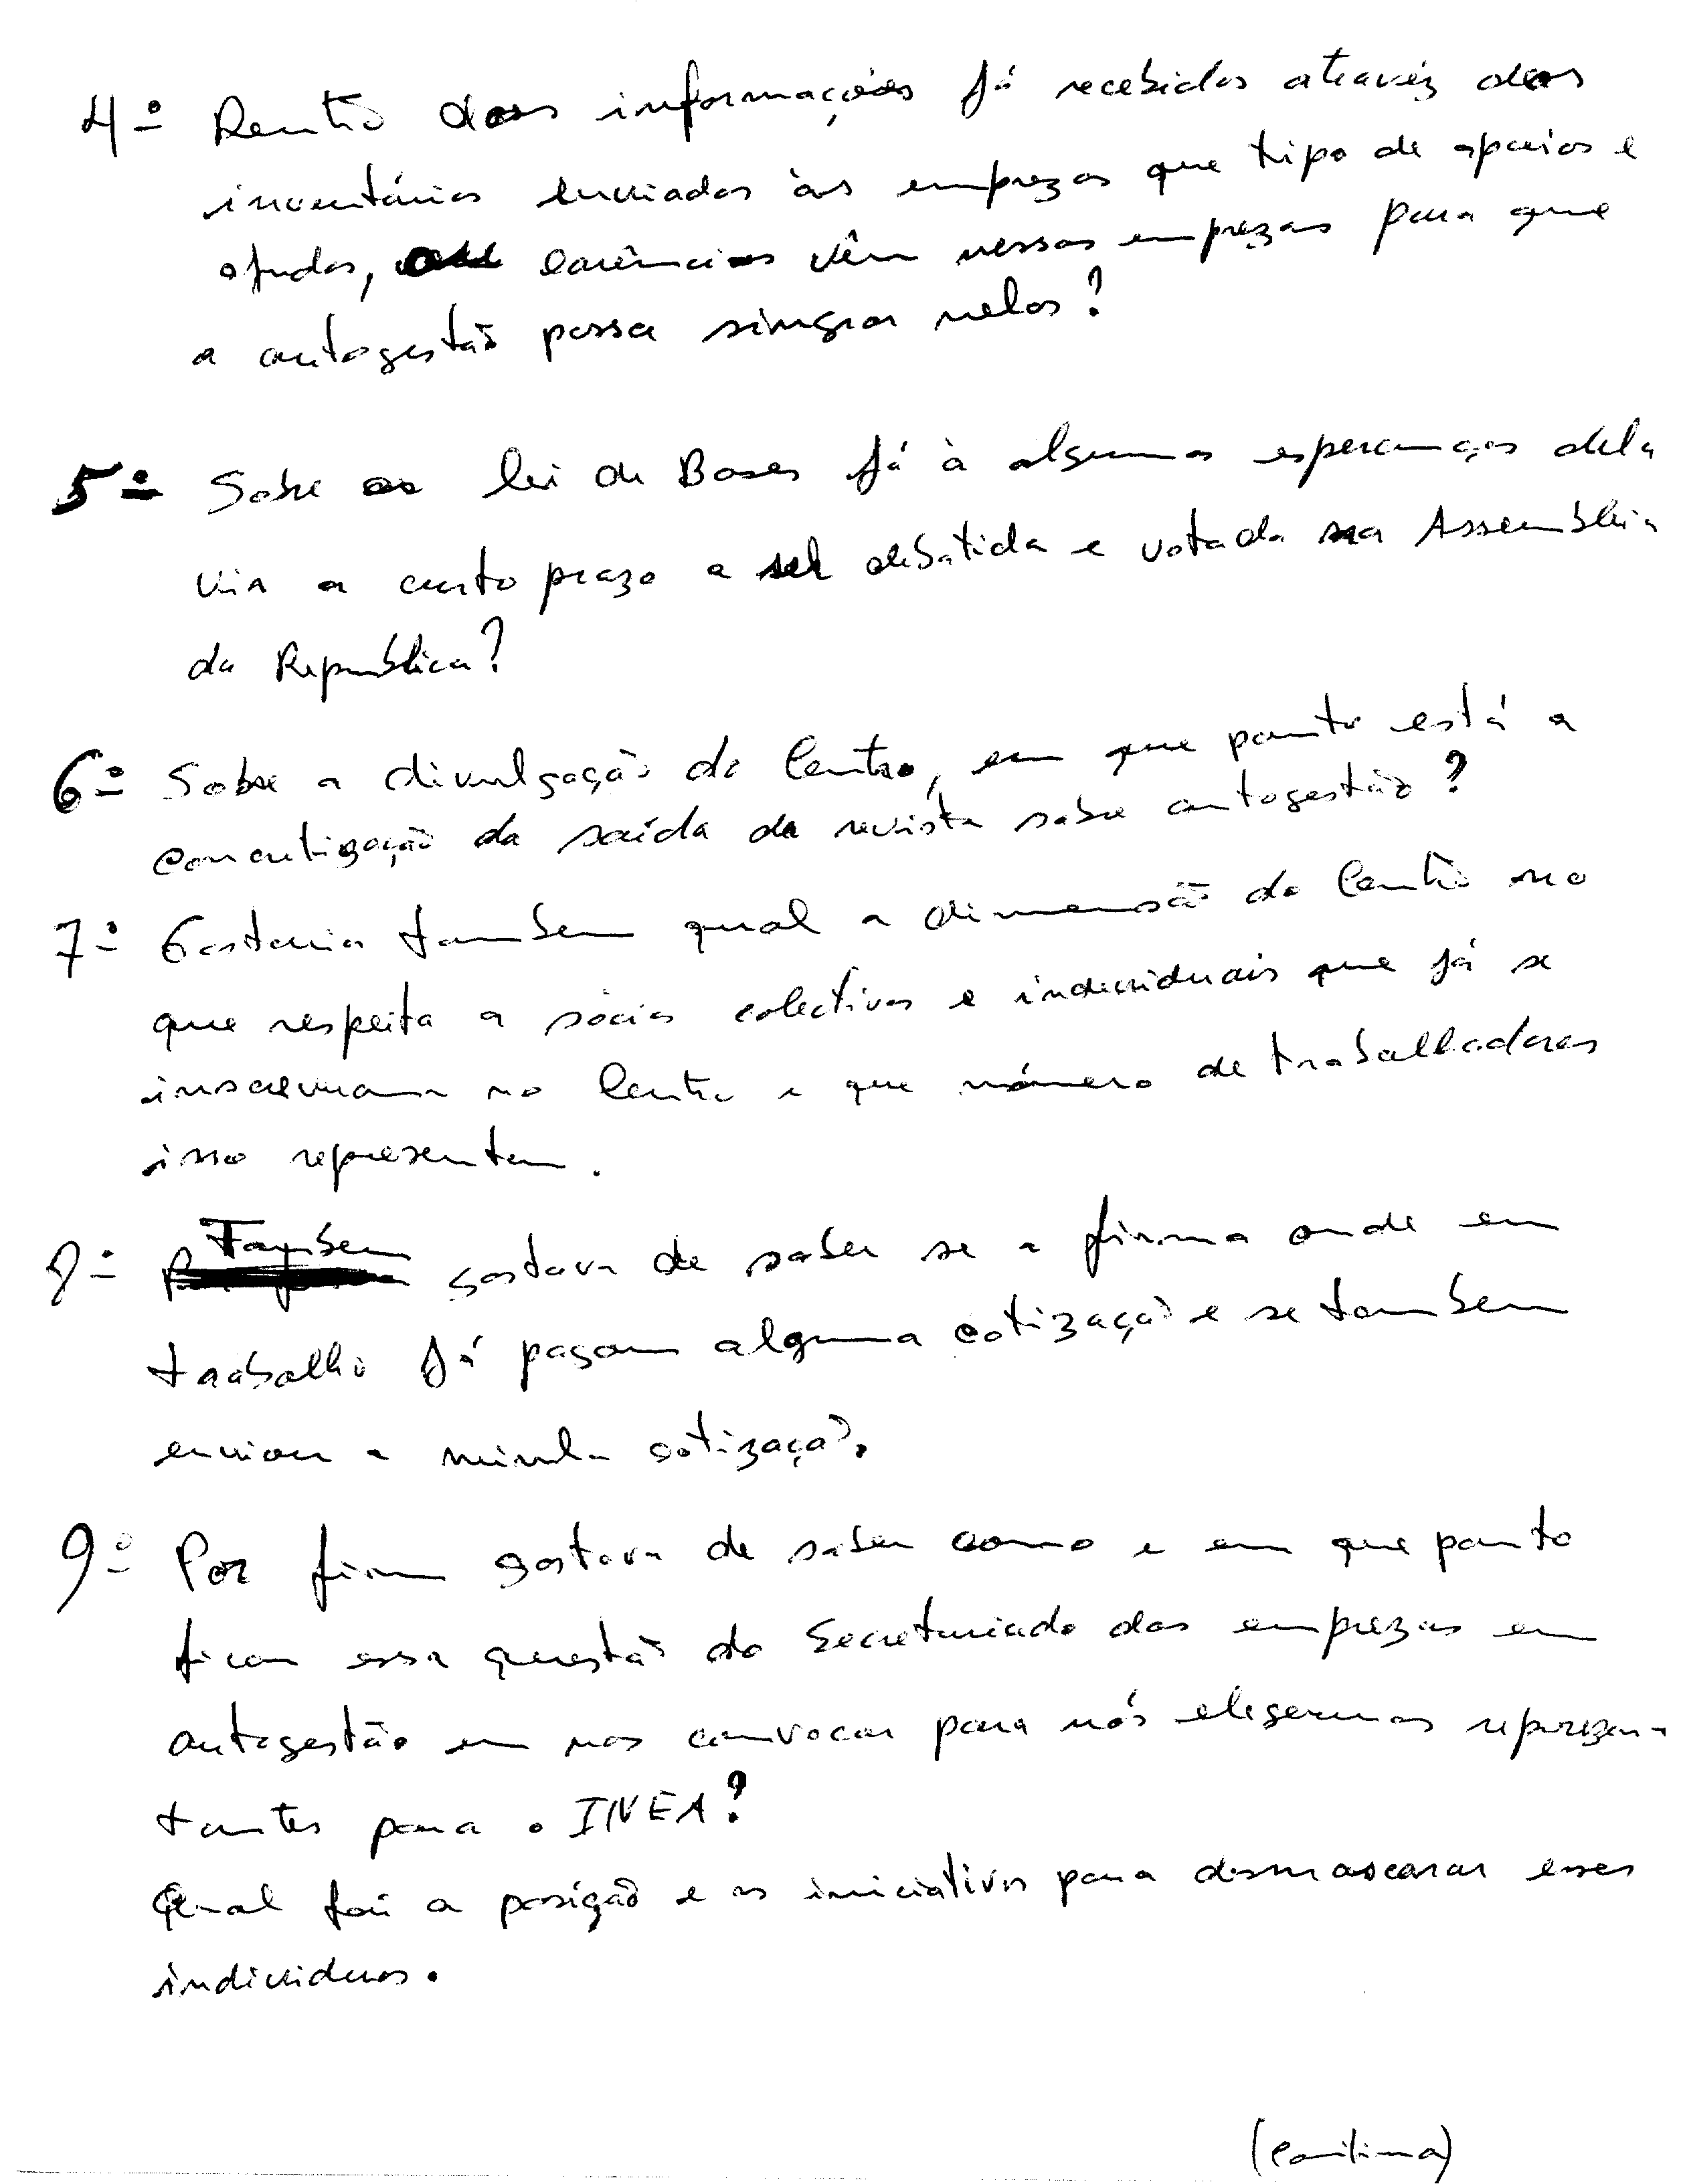 4º Dentro das informações já recebidas atravéz dos
inventários enviados às emprezas que tipo de apoios e
ajudas, carências vêm nessas emprezas para que
a autogestão possa singrar nelas?
5º Sobre a lei de Bases já à algumas esperanças dela
vir a curto prazo a ser debatida e votada na Assembleia
da Republica?
6º Sobre a divulgação do Centro, em que ponto está a
concretização da saída da revista sobre autogestão?
7º Gostaria tambem qual a dimensão do Centro no
que respeita a sócios colectivos e individuais que já se
inscreveram no Centro e que número de trabalhadores
isso representam.
8º Tambem gostava de saber se a firma onde eu
trabalho já pagou alguma cotização e se tambem
enviou a minha cotização.
9º Por fim gostava de saber como e em que ponto
ficou essa questão do Secretariado das emprezas em
autogestão em nos convocar para nós elegermos reprezen-
tantes para o INEA?
Qual foi a posição e as iniciativas para desmascarar esses
individuos.
(Continua)